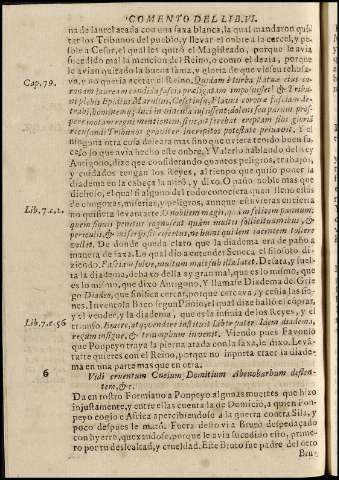 COMENTO DEL LIB. VI.
na de laurel atada con una faxa blanca, la qual mandaron qui-
tar los Tribunos del pueblo, y llevar el onbre a la carcel, y pe-
sole a Cesar, el qual les quitò el Magistrado, porque le avia
sucedido mal la mencion del Reino, o como el dezia, porque
le avian quitado la buena fama, y gloria de que viesen rehusa-
va, y no queria acetar el Reino. Quidam è turba statuæ eius co-
Cap. 79.
ronam lauream candida fascia præligatam imposuisset: & Tribu-
ni plebis Epidius Marullus, Cesetiusq; Flavus coronæ fasciam de-
trahi, hominemq; duci in vincula iussissent, dolens seu parum pros-
pere motam regni mentionem, sive, ut ferebat ereptam sibi gloriã
recusandi Tribunos graviter increpitos potestate privavit. Y el
ninguna otra cosa deseava mas sino que tuviera tendo buen su-
ceso lo que avia hecho este onbre, Y Valerio hablando del Rey
Antigono, dize que considerando quantos peligros, trabajos,
y cuidados cengan los Reyes, al tiempo que quiso poner la
diadema en la cabeça la mirò, y dixo. O paño noble mas que
dichoso, el qual si alguno del todo conociera quan lleno estàs
de congoxas, miserias, y peligros, aunque estuvieras en tierra
Lib. 7. c. 2.
no quisiera levantarte. O nobilem magis, quam felicem pannum:
quem siquis penitus cognoscat quàm multis sollicitudinibus, &
periculis, & miserijs sit refertus, ne humi quidem iacentem tollere
vellet. De donde queda claro que la diadema era de paño a
manera de faxa. Lo qual dio a entender Seneca el filosofo di-
ziendo.
ta la diadema, dehaxo della ay gran mal, que es lo mismo, que
es lo mismo, que dixo Antigono, Y llamase Diadema del Grie-
go Diadeo, que sinifica cercar, porque cercava, y ceñia las sie-
nes. Inventola Baco segun Plinio, el qual dize hallò el coprar,
y el vender, y la diadema, que es la insinia de los Reyes, y el
Lib. 7. c. 56
triunfo. Emere, atq; vendere instituit Liber pater. Idem diadema,
regium insigne, & triumphum invenit. Viendo pues Favonio
que Ponpeyo traya la pierna atada con la faxa, le dixo. Levã-
tarte quieres con el Reino, porque no inporta traer la diade-
ma en una parte mas que en otra.
6
Vidi cruentum Cneium Domitium Ahenobarbum deflen-
tem, &c.
Da en rostro Formiano a Ponpeyo algunas muertes que hizo
injustamente, y entre ellas cuenta la de Domicio, a quien Pon-
peyo cogio en Africa apercibiendose a la guerra contra Sila, y
poco despues le matò. Fuera desto vi a Bruto despedaçado
con hyerro, quexandose, porque le avia sucedido esto, prime-
ro por tu deslealtad, y crueldad. Este Bruto fue padre del otro
Bru-